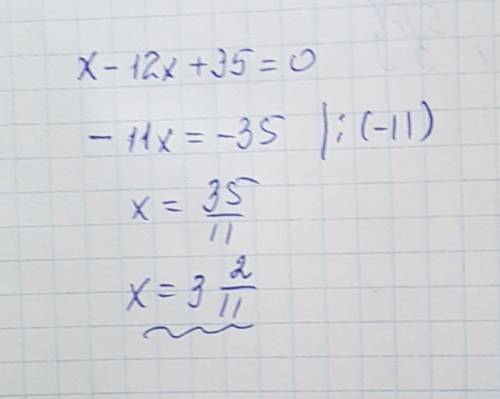 x - 12x + 35 = 0
- 11x = -35 | : (-11)
x = 35/11
x = 3 2/11